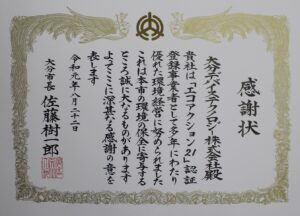 感謝状
大分デバイステクノロジー株式会社殿
貴社は「エコアクション21」認証
登録事業者として多年にわたり
優れた環境経営に努められました
これは本市の環境の保全に寄与する
ところ誠に大なるものがあります
よってここに深甚なる感謝の意を
表します
令和元年八月二十二日
大分市長 佐藤樹一郎